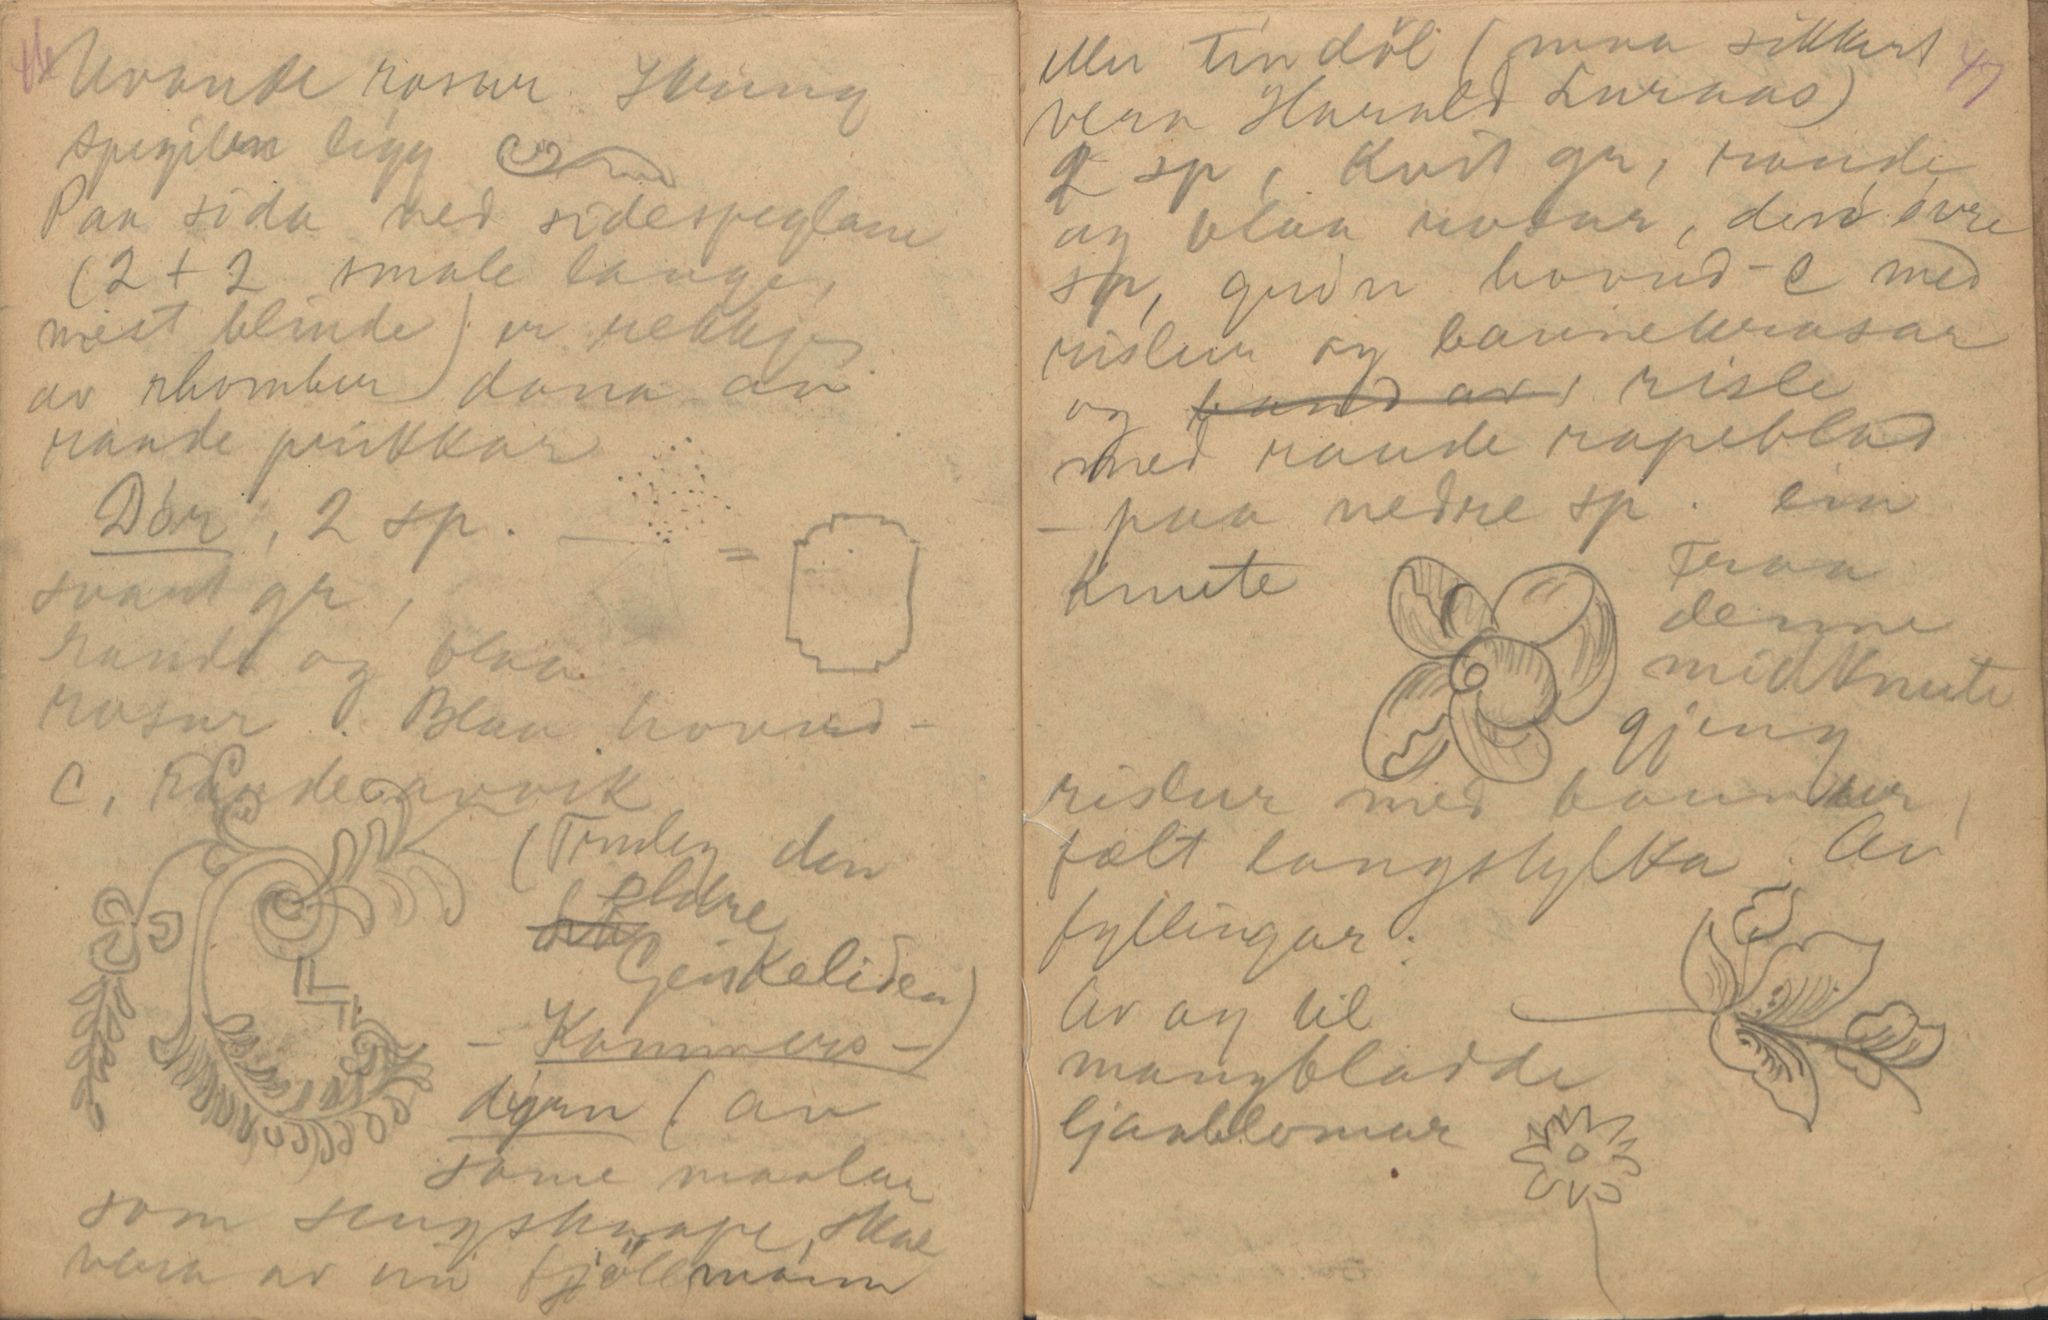 46
rosur. Kring
spegilen ligg
Paa sida ved sidespeglane
(2 + 2 smale lange,
mest blinde) er rekkjer
av rhomber dana av
raude prikkar
Dör, 2 sp.
=
svart gr,
raude og blaa
rosur. Blaa hovud-
C, raude avvik
(Truleg den
eldre
Geiskeliden)
- Kammers-
dýrn (av
same maalar
som sengskaape, skal
vera av ein fjöllmann
47
eller Tindöl (maa sikkert
vera Harald Luraas)
2 sp, kvit gr, raude
og blaa rosur, den övre
sp, grön hovud-C med
rislur og baunekrasar
og band av risle
med raude rapeblad
- paa nedre sp. ein
knute
Fraa
denne
midtknute
gjeng
rislur med baunur,
fælt langstylka. Av
fyllingar:
Av og til
mangbladde
ljaablomar